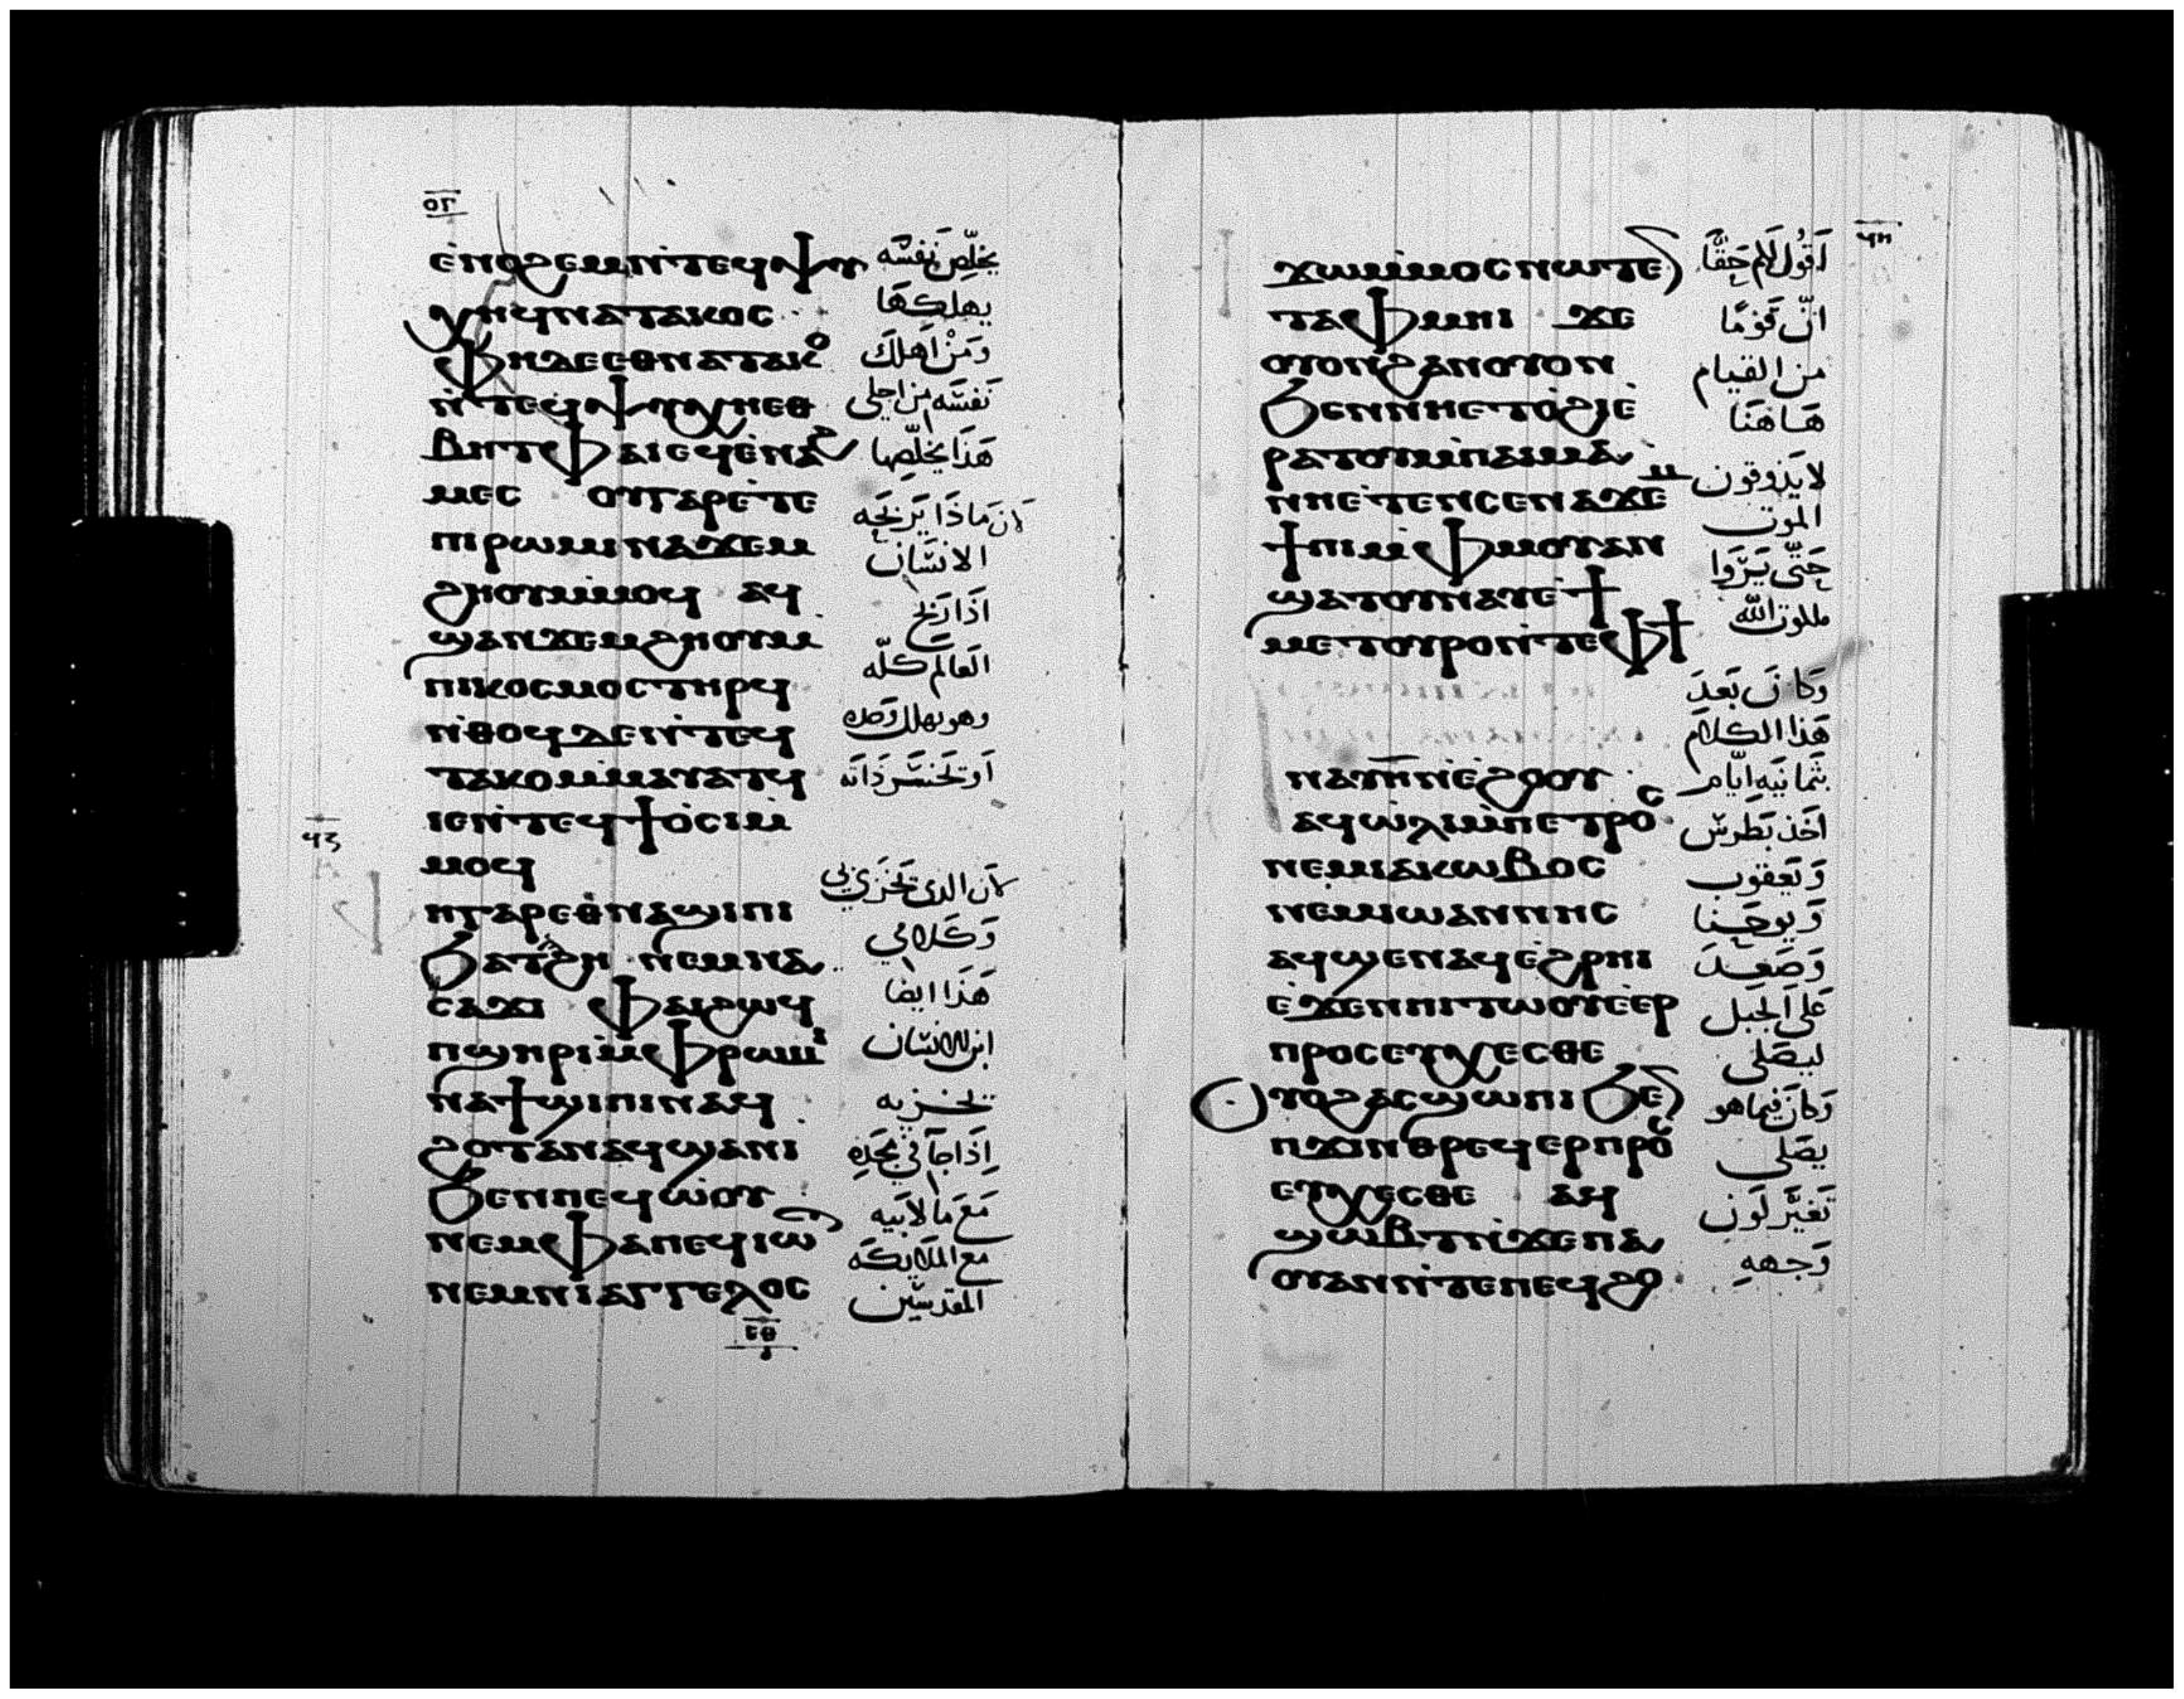 ⲉⲛⲟϩⲉⲙⲛ̀ⲧⲉϥⲯⲩ
ⲭⲏϥⲛⲁⲧⲁⲕⲟⲥ
ⲫⲏⲇⲉⲉⲑⲛⲁⲧⲁⲕⲟ
ⲛ̀ⲧⲉϥⲯⲩⲭⲏⲉⲑ
ⲃⲏⲧⲫⲁⲓⲉϥⲉ̀ⲛⲁϩ
ⲙⲉⲥ ⲟⲩⲅⲁⲣⲉ̀ⲧⲉ
ⲡⲓⲣⲱⲙⲓⲛⲁϫⲉⲙ
ϩⲏⲟⲩⲙ̀ⲙⲟϥ ⲁϥ
ϣⲁⲛϫⲉⲙϩⲏⲟⲩⲙ
ⲡⲓⲕⲟⲥⲙⲟⲥⲧⲏⲣϥ
ⲛ̀ⲑⲟϥⲇⲉⲛ̀ⲧⲉϥ
ⲧⲁⲕⲟⲙ̀ⲙⲁⲩⲁⲧϥ
ⲓⲉⲛ̀ⲧⲉϥϯⲟ̀ⲥⲓⲙ̀
ⲙⲟϥ
ⲏⲅⲁⲣⲉⲑⲛⲁϣⲓⲡⲓ
ϧⲁⲧϩⲏ ⲛⲉⲙⲛⲁ
ⲥⲁϫⲓ ⲫⲁⲓϩⲱϥ
ⲡϣⲏⲣⲓⲙ̀ⲫⲣⲱⲙⲓ
ⲛⲁϯϣⲓⲡⲓⲛⲁϥ
ϩⲟⲧⲁⲛⲁϥϣⲁⲛⲓ̀
ϧⲉⲛⲡⲉϥⲱ̀ⲟⲩ
ⲛⲉⲙⲫⲁⲡⲉϥⲓⲱⲧ
ⲛⲉⲙⲛⲓⲁⲅⲅⲉⲗⲟⲥ
يخلّص نفسه
يهلكها
ومن اهلك
نفسه من اجلي
هذا يخلّصها
لان ماذا يربحه
الانسان
اذا ربح
العالم كلّه
وهو يهلك وحده
او تخسر ذاته
لان الذي تخزي بي
وكلامي
هذا ايضا
ابن الانسان
يخزيه
اذا جآ في مجده
مع ما لابيه
مع الملايكة
المقدسين
ϫⲱⲙ̀ⲙⲟⲥⲛⲱⲧⲉⲛ
ⲧⲁⲫⲙⲏⲓ ϫⲉ
ⲟⲩⲟⲛϩⲁⲛⲟⲩⲟⲛ
ϧⲉⲛⲛⲏⲉⲧⲟ̀ϩⲓⲉ̀
ⲣⲁⲧⲟⲩⲙ̀ⲡⲁⲓⲙⲁ
ⲛⲏⲉⲧⲉⲛⲥⲉⲛⲁϫⲉⲙ
ϯⲡⲓⲙ̀ⲫⲙⲟⲩⲁⲛ
ϣⲁⲧⲟⲩⲛⲁⲩⲉ̀ϯ
ⲙⲉⲧⲟⲩⲣⲟⲛ̀ⲧⲉⲫϯ
ⲛⲁⲩⲏ̅ⲛ̀ⲉ̀ϩⲟⲟⲩ
ⲁϥⲱ̀ⲗⲓⲙ̀ⲡⲉⲧⲣⲟⲥ
ⲛⲉⲙⲓⲁⲕⲱⲃⲟⲥ
ⲛⲉⲙⲓⲱⲁⲛⲛⲏⲥ
ⲁϥϣⲉⲛⲁϥⲉ̀ϩⲣⲏⲓ
ⲉ̀ϫⲉⲛⲡⲓⲧⲱⲟⲩⲉ̀ⲉⲣ
ⲡⲣⲟⲥⲉⲩⲭⲉⲥⲑⲉ
ⲟⲩⲟϩⲁⲥϣⲱⲡⲓϧⲉⲛ
ⲡϫⲓⲛⲑⲣⲉϥⲉⲣⲡⲣⲟⲥ
ⲉⲩⲭⲉⲥⲑⲉ ⲁϥ
ϣⲱⲃⲧⲛ̀ϫⲉⲡⲁ
ⲟⲩⲁⲛⲛ̀ⲧⲉⲡⲉϥϩⲟ
اقول لكم حقًّا
انّ قومًا
من القيام
هاهنا
لا يذوقون
الموت
حتّى يروا
ملكوت الله
وكان بعد
هذا الكلام
ثمانيه ايّام
اخذ بطرس
ويعقوب
ويوحنا
وصعد
على الجبل
ليصلي
وكان فيما هو
يصلي
تغيّر لون
وجهه